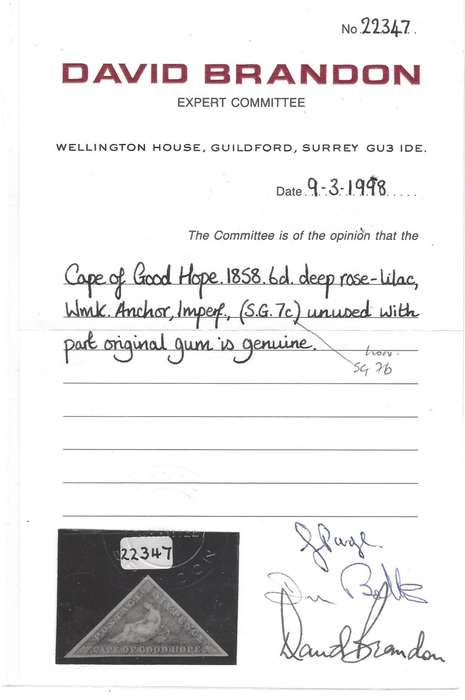 No. 22347.
DAVID BRANDON
EXPERT COMMITTEE
WELLINGTON HOUSE, GUILDFORD, SURREY GU3 IDE.
Date 9-3-1998
The Committee is of the opinion that the
Cape of Good Hope. 1858. 6d. deep rose-lilac,
Wmk. Anchor, Imperf., (S.G. 7c) unused with
part original gum is genuine.
now
SG 7b
22347
CAPE OF GOOD HOPE
David Brandon